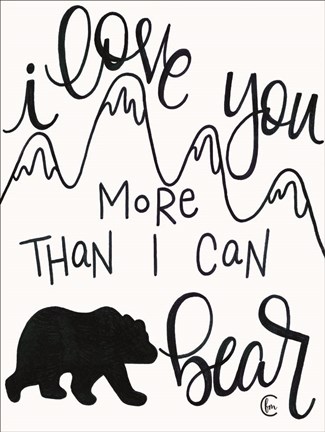 i love you
MoRe
THaN I CaN
bear